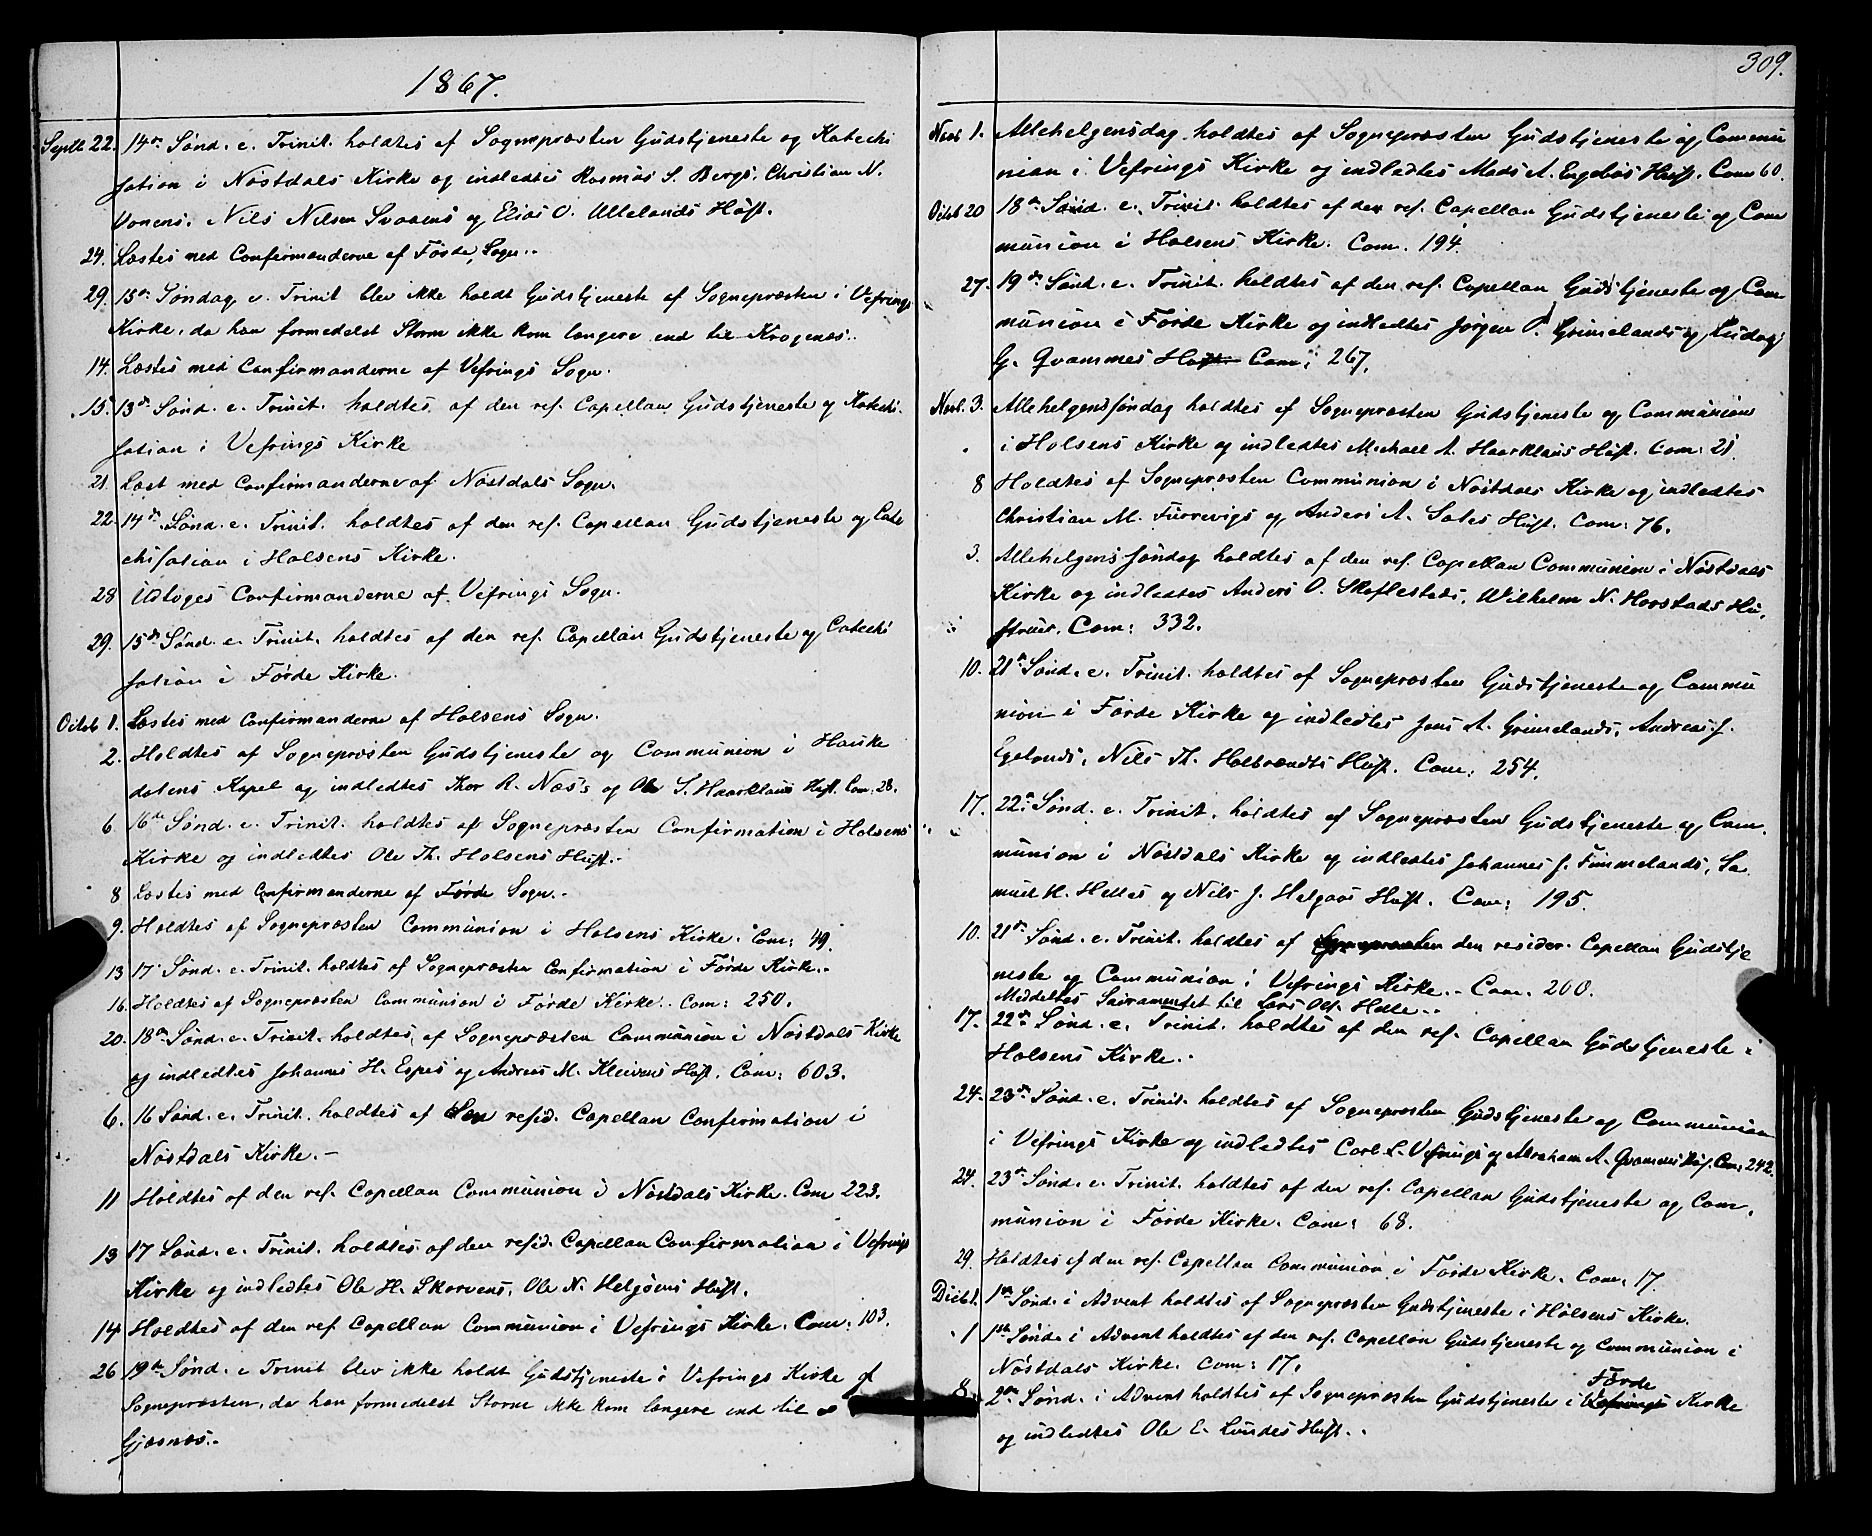 1867.
Septb 22. 14de Sønd. e. Trinit. holdtes af Sognepræsten Gudstjeneste og Katechi
sation i Nøstdals Kirke og indledtes Rasmus S. Bergs, Christian N.
Vonens, Nils Nilsen Svaaens og Elias O. Ullelands Hust.
24. Læstes med Confirmanderne af Førde Sogn.
29. 15de Søndag e. Trinit blev ikke holdt Gudstjeneste af Sognepræsten i Vefrings
Kirke, da han formedelst Storm ikke kom længere end til Krogenæs.
14. Læstes med Confirmanderne af Vefrings Sogn.
15. 13de Sønd. e. Trinit. holdtes af den res. Capellan Gudstjeneste og Katechi-
sation i Vefrings Kirke
21. Læst med Confirmanderne af Nøstdals Sogn.
22. 14de Sønd. e. Trinit. holdtes af den res. Capellan Gudstjeneste og Cate
chisation i Holsens Kirke.
28 Udtoges Confirmanderne af Vefrings Sogn.
29. 15de Sønd. e. Trinit. holdtes af den res. Capellan Gudstjeneste og Catechi
sation i Førde Kirke.
Octob 1. Læstes med Confirmanderne af Holsens Sogn.
2. Holdtes af Sognepræsten Gudstjeneste og Communion i Hauke
dalens Kapel og indledtes Thor R. Næss og Ole S. Haarklaus Hust. Com: 28.
6. 16de Sønd. e. Trinit. holdtes af Sognepræsten Confirmation i Holsens
Kirke og indledtes Ole Th. Holsens Hust.
8 Læstes med Confirmanderne af Førde Sogn.
9. Holdtes af Sognepræsten Communion i Holsens Kirke. Com: 49.
13 17 Sønd. e. Trinit. holdtes af Sognepræsten Confirmation i Førde Kirke.
16. Holdtes af Sognepræsten Communion i Førde Kirke. Com: 250.
20. 18de Sønd. e. Trinit. holdtes af Sognepræsten Communion i Nøstdals Kirke
og indledtes Johannes H. Espes og Andreas M. Kleivens Hust. Com: 603.
6. 16 Sønd. e. Trinit. holdtes af den resid. Capellan Confirmation i
Nøstdals Kirke.
11 Holdtes af den res. Capellan Communion i Nøstdals Kirke. Com 223.
13 17 Sønd. e. Trinit. holdtes af den resid. Capellan Confirmation i Vefrings
Kirke og indledtes Ole H. Skorvens, Ole N. Helgøens Hust.
14 Holdtes af den res. Capellan Communion i Vefrings Kirke. Com: 103.
26 19de Sønd. e Trinit blev ikke holdt Gudstjeneste i Vefrings Kirke af
Sognepræsten, da han formedelst Storm ikke kom længere end til
Gjæsnæs.
309.
Novb 1. Allehelgensdag holdtes af Sognepræsten Gudstjeneste og Commu
nion i Vefrings Kirke og indledtes Mads A. Engebøs Hust. Com 60.
Octob 20 18de Sønd. e. Trinit. holdtes af den res. Capellan Gudstjeneste og Com
munion i Holsens Kirke. Com. 194.
27. 19de Sønd. e. Trinit. holdtes af den res. Capellan Gudstjeneste og Com
munion i Førde Kirke og indledtes Jørgen P. Grimelands og
G. Qvammes Hust. Com: 267.
Novb. 3. Allehelgenssøndag holdtes af Sognepræsten Gudstjeneste og Communion
i Holsens Kirke og indledtes Michael A. Haarklaus Hust. Com: 21.
8 Holdtes af Sognepræsten Communion i Nøstdals Kirke og indledtes
Christian M. Furrevigs og Anders A. Soles Hust. Com: 76.
3. Allehelgens søndag holdtes af den res. Capellan Communion i Nøstdals
Kirke og indledtes Anders O. Skeflestads, Wilhelm N. Horstads Hu,
struer. Com: 332.
10. 21de Sønd. e. Trinit. holdtes af Sognepræsten Gudstjeneste og Commu
nion i Førde Kirke og indledtes Jens A. Grimelands, Andreas J.
Egelands, Nils Th. Halbrændts Hust. Com: 254.
17. 22de Sønd. e. Trinit. holdtes af Sognepræsten Gudstjeneste og Com.
munion i Nøstdals Kirke og indledtes Johannes J. Fimmelands, Sa
muel H. Helles og Nils J. Helgaas Hust. Com: 195.
10. 21de Sønd. e. Trinit. holdtes af Sognepræsten den resider. Capellan Gudstje
neste og Communion i Vefrings Kirke. Com. 200.
Meddeltes Sacramentet til Lars Ols. Helle.
17. 22de Sønd. e. Trinit. holdtes af den res. Capellan Gudstjeneste i
Holsens Kirke.
24. 23de Sønd. e. Trinit. holdtes af Sognepræsten Gudstjeneste og Communion
i Vefrings Kirke og indledtes Carl L. Vefrings og Abraham A. Qvammes Hust. Com: 242.
24. 23de Sønd. e. Trinit. holdtes af den res. Capellan Gudstjeneste og Com,
munion i Førde Kirke. Com: 68.
29. Holdtes af den res. Capellan Communion i Førde Kirke. Com: 17.
Decb 1. 1ste Sønd. i Advent holdtes af Sognepræsten Gudstjeneste i Holsens Kirke.
1 1ste Sønd. i Advent holdtes af den res. Capellan Gudstjeneste og Communion i
Nøstdals Kirke. Com: 17.
8. 2den Sønd. i Advent holdtes af Sognepræsten Gudstjeneste i Vefrings Førde Kirke
og indledtes Ole E. Lundes Hust.